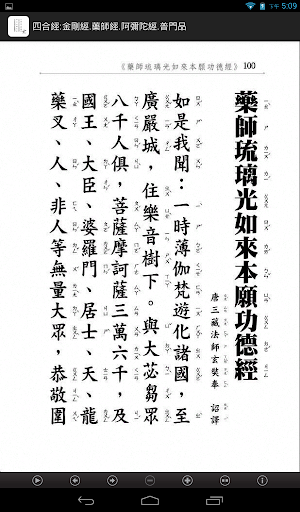 下午 5:09
四合經:金剛經.藥師經.阿彌陀經.普門品
《藥師琉璃光如來本願功德經》 100
藥師琉璃光如來本願功德經
唐三藏法師玄奘奉 詔譯
如是我聞：一時薄伽梵遊化諸國，至
廣嚴城，住樂音樹下。與大苾芻眾
八千人俱，菩薩摩訶薩三萬六千，及
國王、大臣、婆羅門、居士、天、龍
藥叉、人、非人等無量大眾，恭敬圍